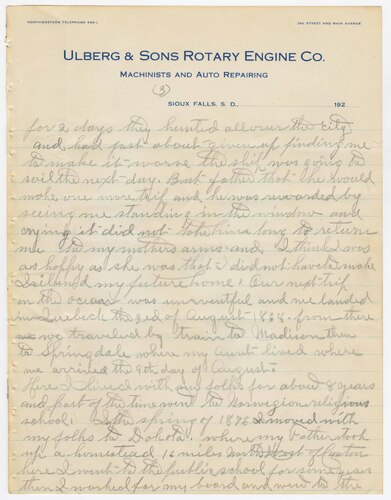 NORTHWESTERN TELEPHONE 408-1
2ND STREET AND MAIN AVENUE
ULBERG & SONS ROTARY ENGINE CO.
MACHINISTS AND AUTO REPAIRING
(3)
SIOUX FALLS, S. D., 192
for 2 days they hunted all over the city
and had just about given up finding me
to make it worse the ship was going to
sail the next day. But father that he would
make one more trip and he was rewarded by
seeing me standing in the window and
crying it did not take him long to return
me to my mothers arms and I think I was
as happy as she was that I did not have to make
Ireland my future home! Our next trip
on the ocean was uneventful and we landed
in Quebeck the 3rd of August 1868. from there
we traveled by train to Madison then
to Springdale where my Aunt lived where
we arrived the 9th day of August.
Here I lived with my folks for about 8 years
and part of the time went to Norwegian religious
school! In the spring of 1876 I moved with
my folks to Dakota! where my Father took
up a homestead 16 miles North West of Canton
here I went to the public school for some years
then I worked for my board and went to the